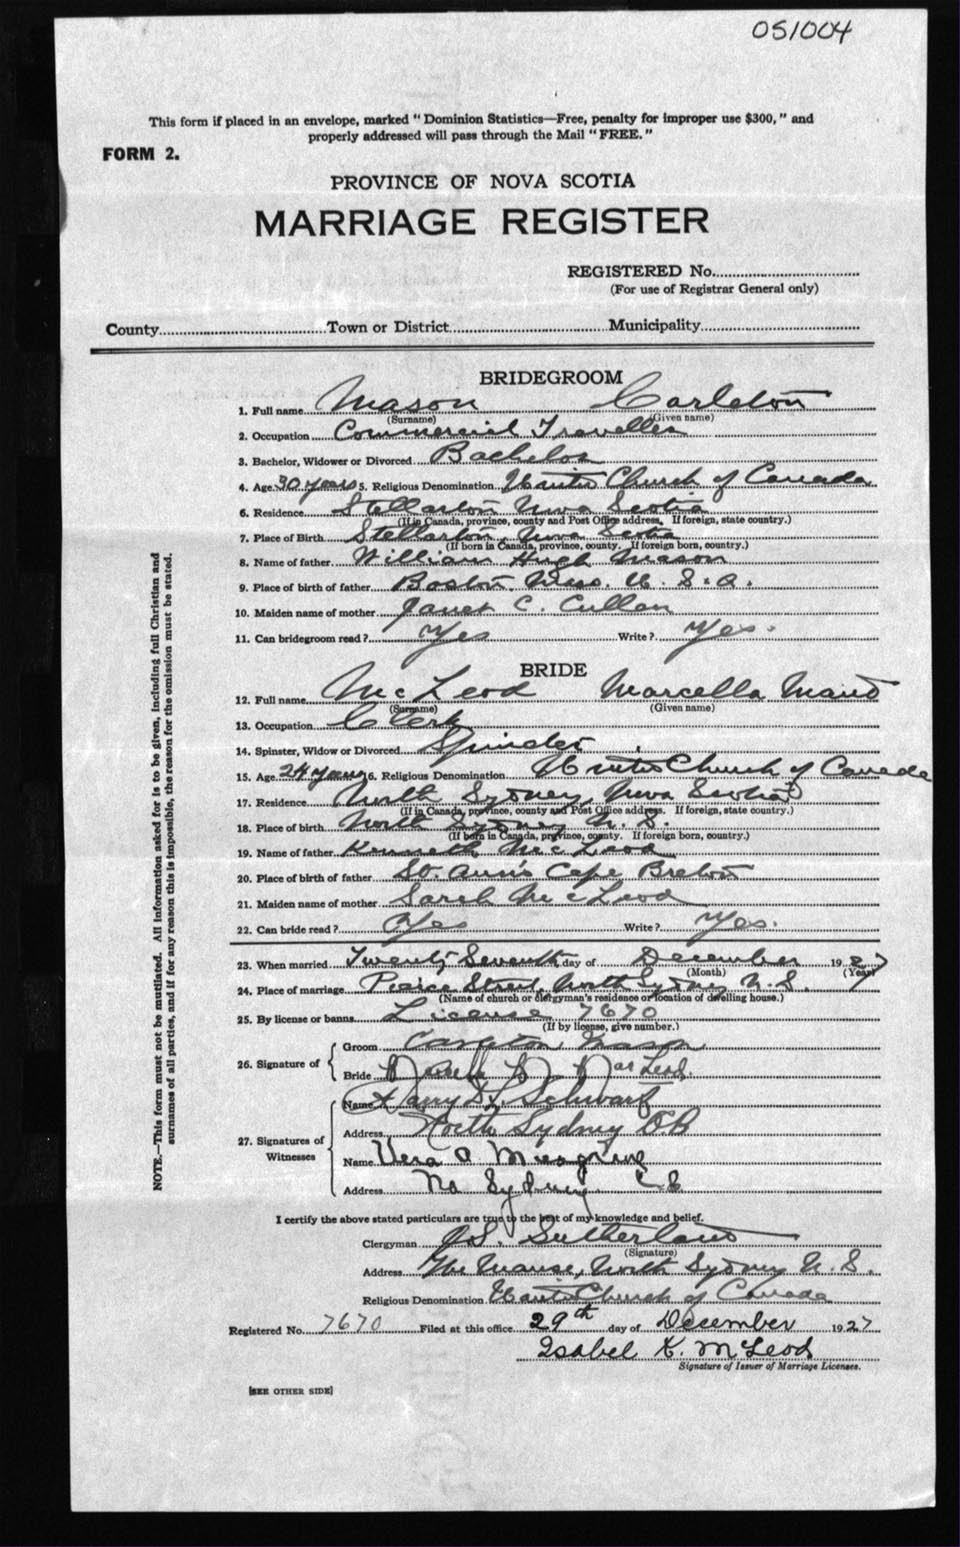 051004
This form if placed in an envelope, marked "Dominion Statistics—Free, penalty for improper use $300," and
properly addressed will pass through the Mail "FREE."
FORM 2.
PROVINCE OF NOVA SCOTIA
MARRIAGE REGISTER
REGISTERED No.
(For use of Registrar General only)
County Town or District Municipality
BRIDEGROOM
1. Full name Mason Carleton
(Surname) (Given name)
2. Occupation Commercial Traveller
3. Bachelor, Widower or Divorced Bachelor
4. Age 30 years 5. Religious Denomination United Church of Canada
6. Residence Stellarton Nova Scotia
(If in Canada, province, county and Post Office address. If foreign, state country.)
7. Place of Birth Stellarton, Nova Scotia
(If born in Canada, province, county. If foreign born, country.)
8. Name of father William Hugh Mason
9. Place of birth of father Boston, Mass. U. S. A.
10. Maiden name of mother Janet C. Cullan
11. Can bridegroom read? Yes Write? Yes.
BRIDE
12. Full name McLeod Marcella Maud
(Surname) (Given name)
13. Occupation Clerk
14. Spinster, Widow or Divorced Spinster
15. Age 24 years 16. Religious Denomination United Church of Canada
17. Residence North Sydney, Nova Scotia
(If in Canada, province, county and Post Office address. If foreign, state country.)
18. Place of birth North Sydney N. S.
(If born in Canada, province, county. If foreign born, country.)
19. Name of father Kenneth McLeod
20. Place of birth of father St. Ann's Cape Breton
21. Maiden name of mother Sarah McLeod
22. Can bride read? Yes Write? Yes.
23. When married Twenty Seventh day of December 1927
(Month) (Year)
24. Place of marriage Pierce Street, North Sydney N. S.
(Name of church or clergyman's residence or location of dwelling house.)
25. By license or banns License 7670
(If by license, give number.)
26. Signature of
Groom Carleton Mason
Bride Marcella M MacLeod.
27. Signatures of Witnesses
Name Harry Schwartz
Address North Sydney C.B
Name Vera A Musgrave
Address No Sydney C B
I certify the above stated particulars are true to the best of my knowledge and belief.
Clergyman Sutherland
(Signature)
Address The Manse, North Sydney N. S.
Religious Denomination United Church of Canada
Registered No. 7670 Filed at this office 29th day of December 1927
Isabel K. McLeod
Signature of Issuer of Marriage Licenses.
[SEE OTHER SIDE]
NOTE.—This form must not be mutilated. All information asked for is to be given, including full Christian and
surnames of all parties, and if for any reason this is impossible, the reason for the omission must be stated.